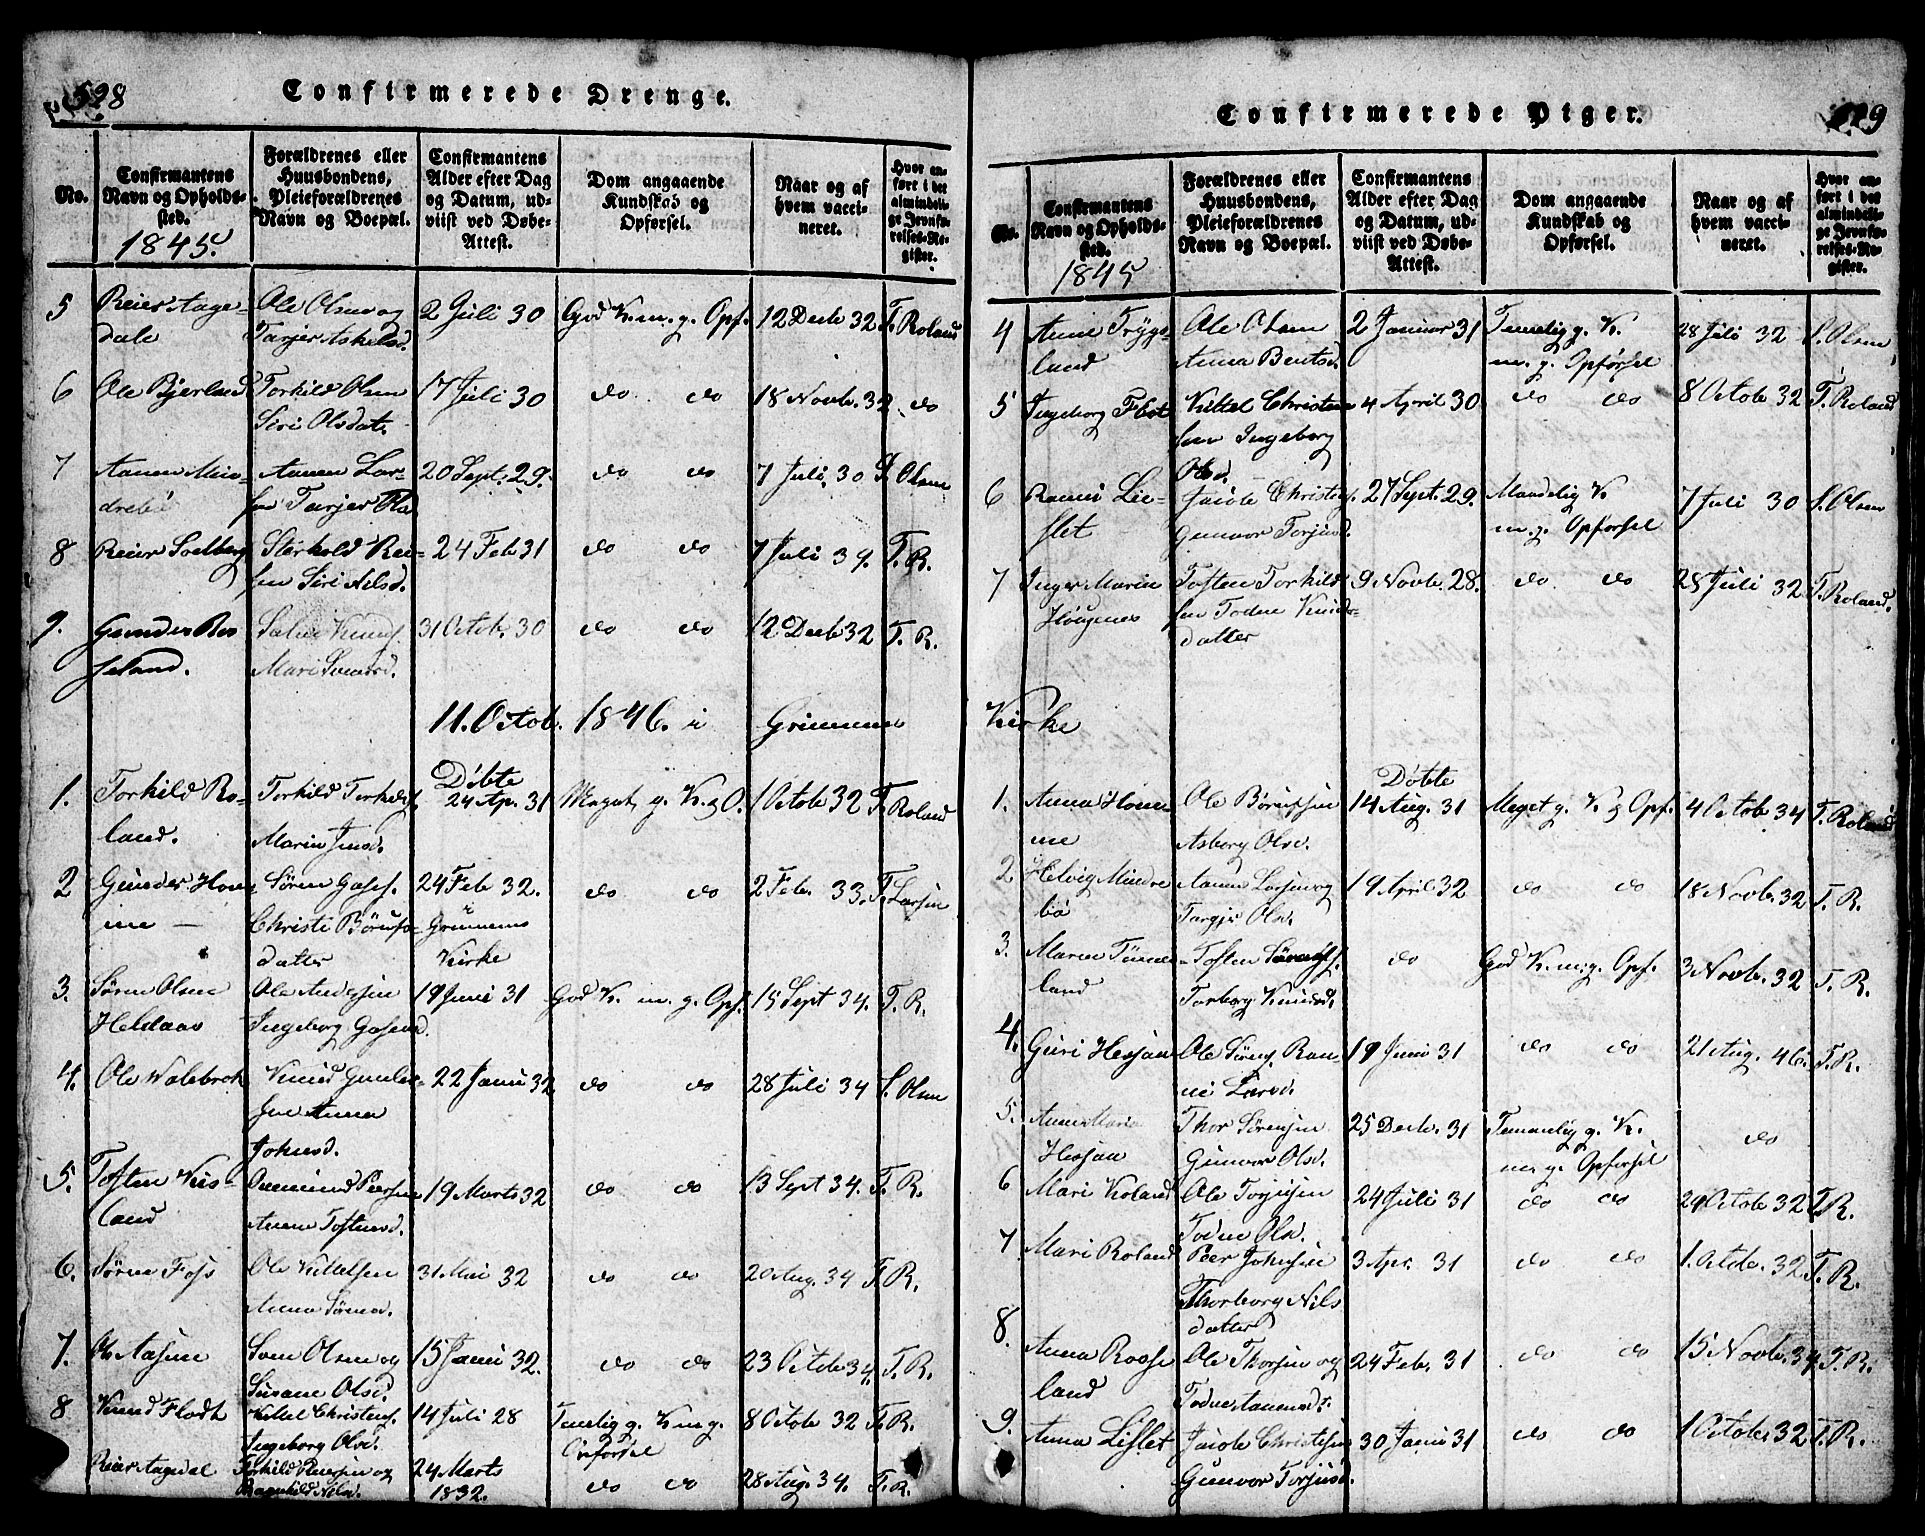 528
Confirmerede Drenge.
No.
Confirmantens Navn og Opholdssted.
1845.
Forældrenes eller Huusbondens, Pleieforældrenes Navn og Boepæl.
Confirmantens Alder efter Dag og Datum, udviist ved Døbe-Attest.
Dom angaaende Kundskab og Opførsel.
Naar og af hvem vaccineret.
Hvor anført i det almindelige Jevnførelses-Register.
5 Reier Aagedale Ole Olsen og Tarjer Askelsd. 2 Juli 30 God K. m. g. Opf. 12 Decb 32 T. Roland
6 Ole Bjerland Torkild Olsen Siri Olsdat. 17 Juli 30 do do 18 Novb. 32 do
7 Aanen Mindrebö Aanen Larsen Tarjer Ols 20 Sept. 29. do do 7 Juli 30 S. Olsen
8 Reier Soelberg Sterkold Reisen Siri Nilsd. 24 Feb 31 do do 7 Juli 39. T. R.
9. Gunder Rosseland. Salve Knuds. Mari Svensd. 31 Octob. 30 do do 12 Decb 32 T. R.
11. Octob. 1846. i Grimmene
1. Torkild Roland. Torkild Torkilds. Maren Jensd. Döbte 24 Ap. 31 Meget g. K. g O. 1 Octob 32 T. Roland
2 Gunder Homme Sören Gases. Christi Börufsdatter 24 Feb 32. i Grimmens Kirke do do 2 Feb. 33. T. Larsen
3. Sören Olsen Heldaas Ole Andersen Ingeborg Gasesd. 19 Juni 31 God K. m. g. Opf. 15 Sept 34. T. R.
4. Ole Walebrok Knud Gunlefsen Anna Johnsd. 22 Janu 32 do do 28 Juli 34 S. Olsen
5. Tosten Kisland Ommund Peersen Anne Tostensd. 19 Marts 32 do do 13 Sept 34. T. R.
6. Sören Foss Ole Kittelsen Anna Sörensd. 31 Mai 32 do do 20 Aug. 34 T. R.
7. Ole Aasen Sven Olsen og Susane Olsd. 15 Janu 32. do do 23 Octob 34. T. R.
8 Knud Flodt Kittel Christens. Ingeborg Olsd. 14 Juli 28 Temelig g. K m g. Opførsel 8 Octob 32 T. R.
Reier Aagedal Torkild Reiersen og Ragnhild Nilsd. 24 Marts 1832. do do 28 Aug. 34. T. R.
Confirmerede Piger.
No.
Confirmantens Navn og Opholdssted.
1845
Forældrenes eller Huusbondens, Pleieforældrenes Navn og Boepæl.
Confirmantens Alder efter Dag og Datum, udviist ved Døbe-Attest.
Dom angaaende Kundskab og Opførsel.
Naar og af hvem vaccineret.
Hvor anført i det almindelige Jevnførelses-Register.
4 Anne Trygsland Ole Olsen Anna Bentsd. 2 Januar 31 Temelig g. K. m. g. Opførsel 28 Juli 32 S. Olsen
5 Ingeborg Flot Kittel Christensen Ingeborg Olsd. 4 April 30 do do 8 Octob 32 T. Roland
6 Ranni Lieslet Jacob Christens. Gunvor Torjusd. 27 Sept. 29. Maadelig K. m. g. Opførsel 7 Juli 30 S. Olsen
7 Inger Maria Hougenes Tosten Torkildsen Todne Knudsdatter 9 Novb. 28. do do 28 Juli 32 T. Roland.
Kirke
1. Anna Homme Ole Börufsen Asberg Olsd. Döbte 14 Aug. 31 Meget g. K g Opf. 4 Octob 34 T. Roland
2 Helvig Mindrebö Aanen Larsen og Targje Olsd. 19 April 32 do do 18 Novb. 32 T. R.
3. Maren Tumeland Tosten Sörens. Torborg Knudsd. do God K. m. g. Opf. 3 Novb. 32 T. R.
4. Guri Hesjan Ole Sörens. Ranni Larsd. 19 Juni 31 do do 21 Aug. 46. T. R.
5. Anne Maria Hesjan Thor Sörensen Gunvor Olsd. 25 Decb. 31 Temmelig g. K. m. g. Opførsel do
6 Mari Roland Ole Torjusen Todne Olsd. 24 Juli 31 do do 29 Octob 32 T. R.
7 Mari Roland Peer Johnsen Thorborg Nilsdatter 3 Apr. 31 do do 1. Octob. 32 T. R.
8. Anna Rosseland Ole Thorsen og Todne Aanensd. 24 Feb. 31 do do 15 Novb. 34 T. R.
9. Anna Lislet Jacob Christensen Gunvor Torjusd. 30 Janu 31 do do 1 Octob. 32 T. R.